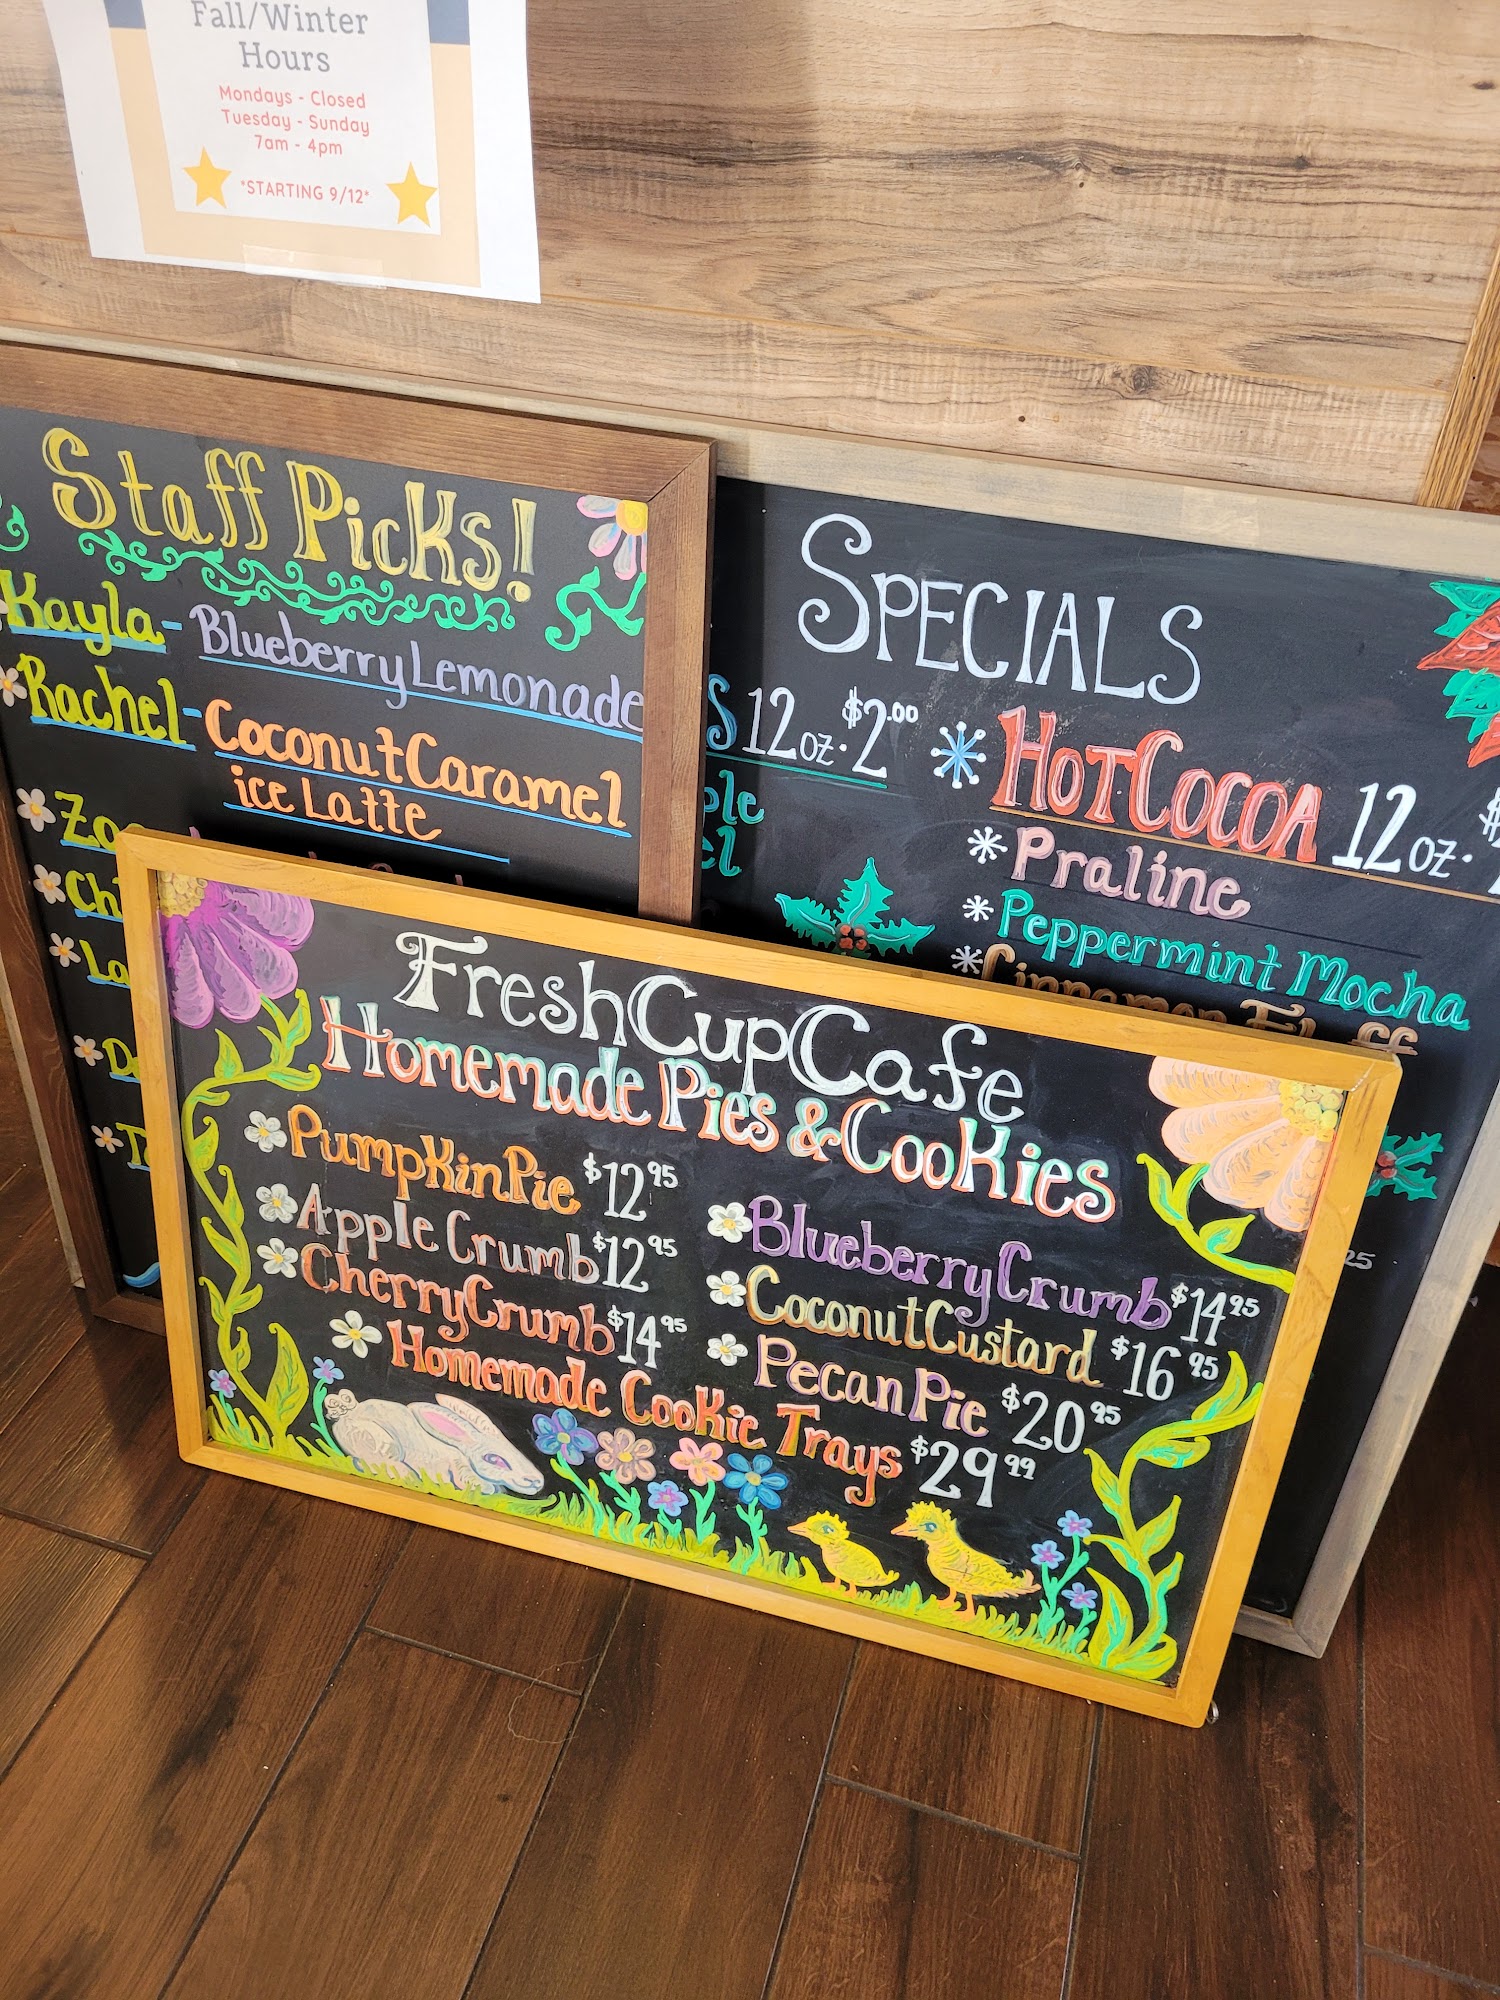 Fall/Winter
Hours
Mondays - Closed
Tuesday - Sunday
7am - 4pm
*STARTING 9/12*
Staff Picks!
Kayla - Blueberry Lemonade
Rachel - Coconut Caramel
ice Latte
SPECIALS
12 oz. $2.00
HOT COCOA 12 oz.
Praline
Peppermint Mocha
Cinnamon Fluff
Fresh Cup Cafe
Homemade Pies & Cookies
Pumpkin Pie $12.95
Apple Crumb $12.95
Cherry Crumb $14.95
Blueberry Crumb $14.95
Coconut Custard $16.95
Pecan Pie $20.95
Homemade Cookie Trays $29.99